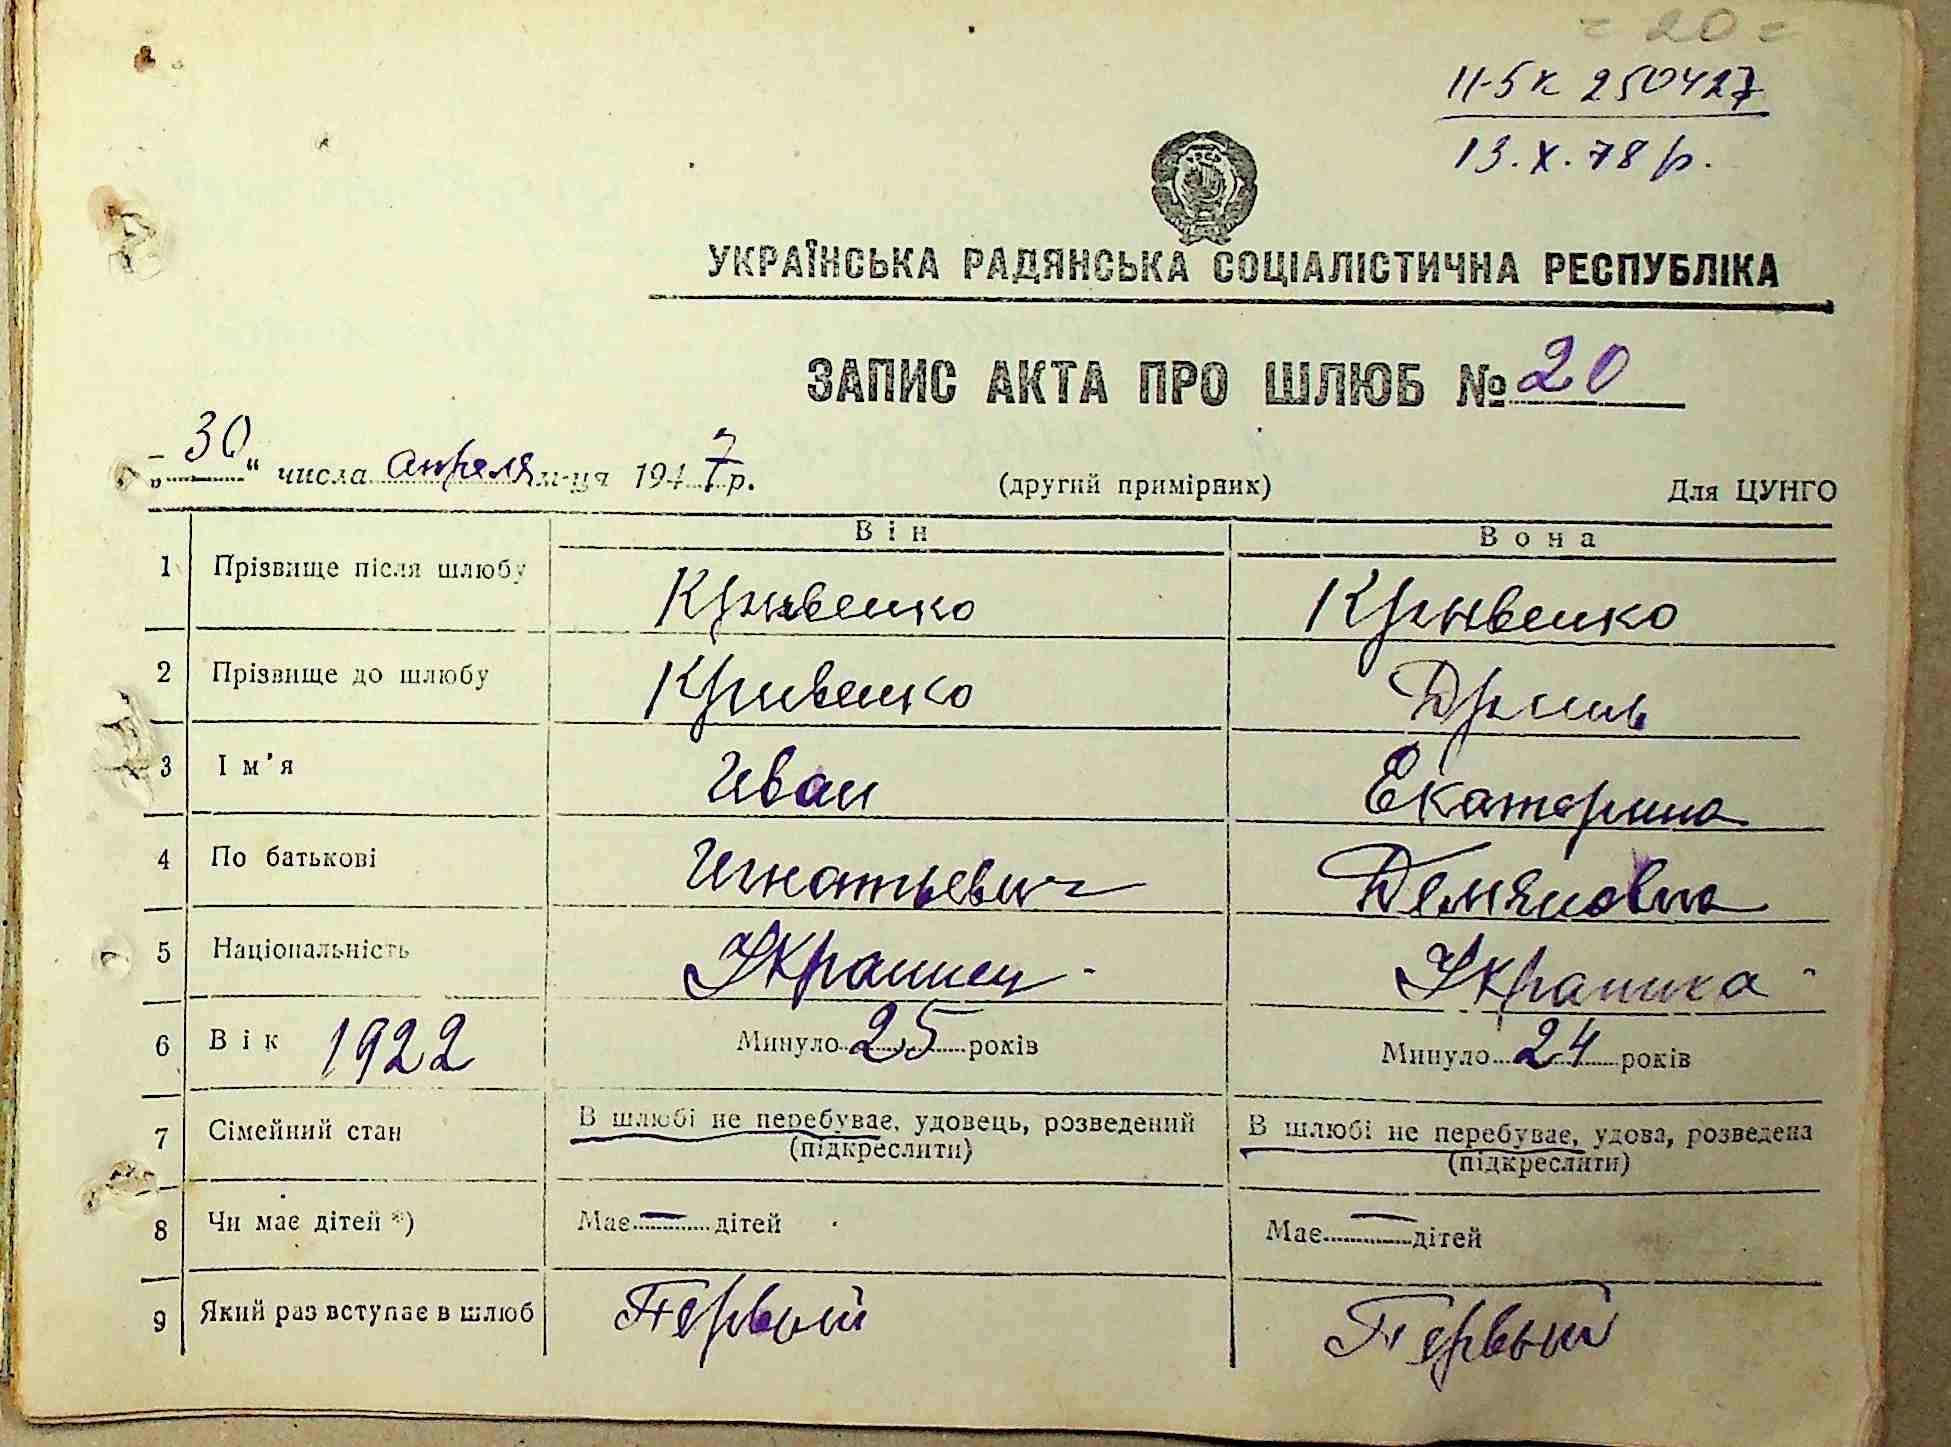 = 20 =
II-БК 250427
13.X.78 р.
УКРАЇНСЬКА РАДЯНСЬКА СОЦІАЛІСТИЧНА РЕСПУБЛІКА
ЗАПИС АКТА ПРО ШЛЮБ № 20
„30“ числа апреля м-ця 1947 р. (другий примірник) Для ЦУНГО
Він Вона
1 Прізвище після шлюбу Кривенко Кривенко
2 Прізвище до шлюбу Кривенко
3 Ім'я Иван Екатерина
4 По батькові Игнатьевич Демяновна
5 Національність Украинец Украинка
6 Вік 1922 Минуло 25 років Минуло 24 років
7 Сімейний стан В шлюбі не перебуває, удовець, розведений В шлюбі не перебуває, удова, розведена
(підкреслити) (підкреслити)
8 Чи має дітей *) Має — дітей Має — дітей
9 Який раз вступає в шлюб Первый Первый